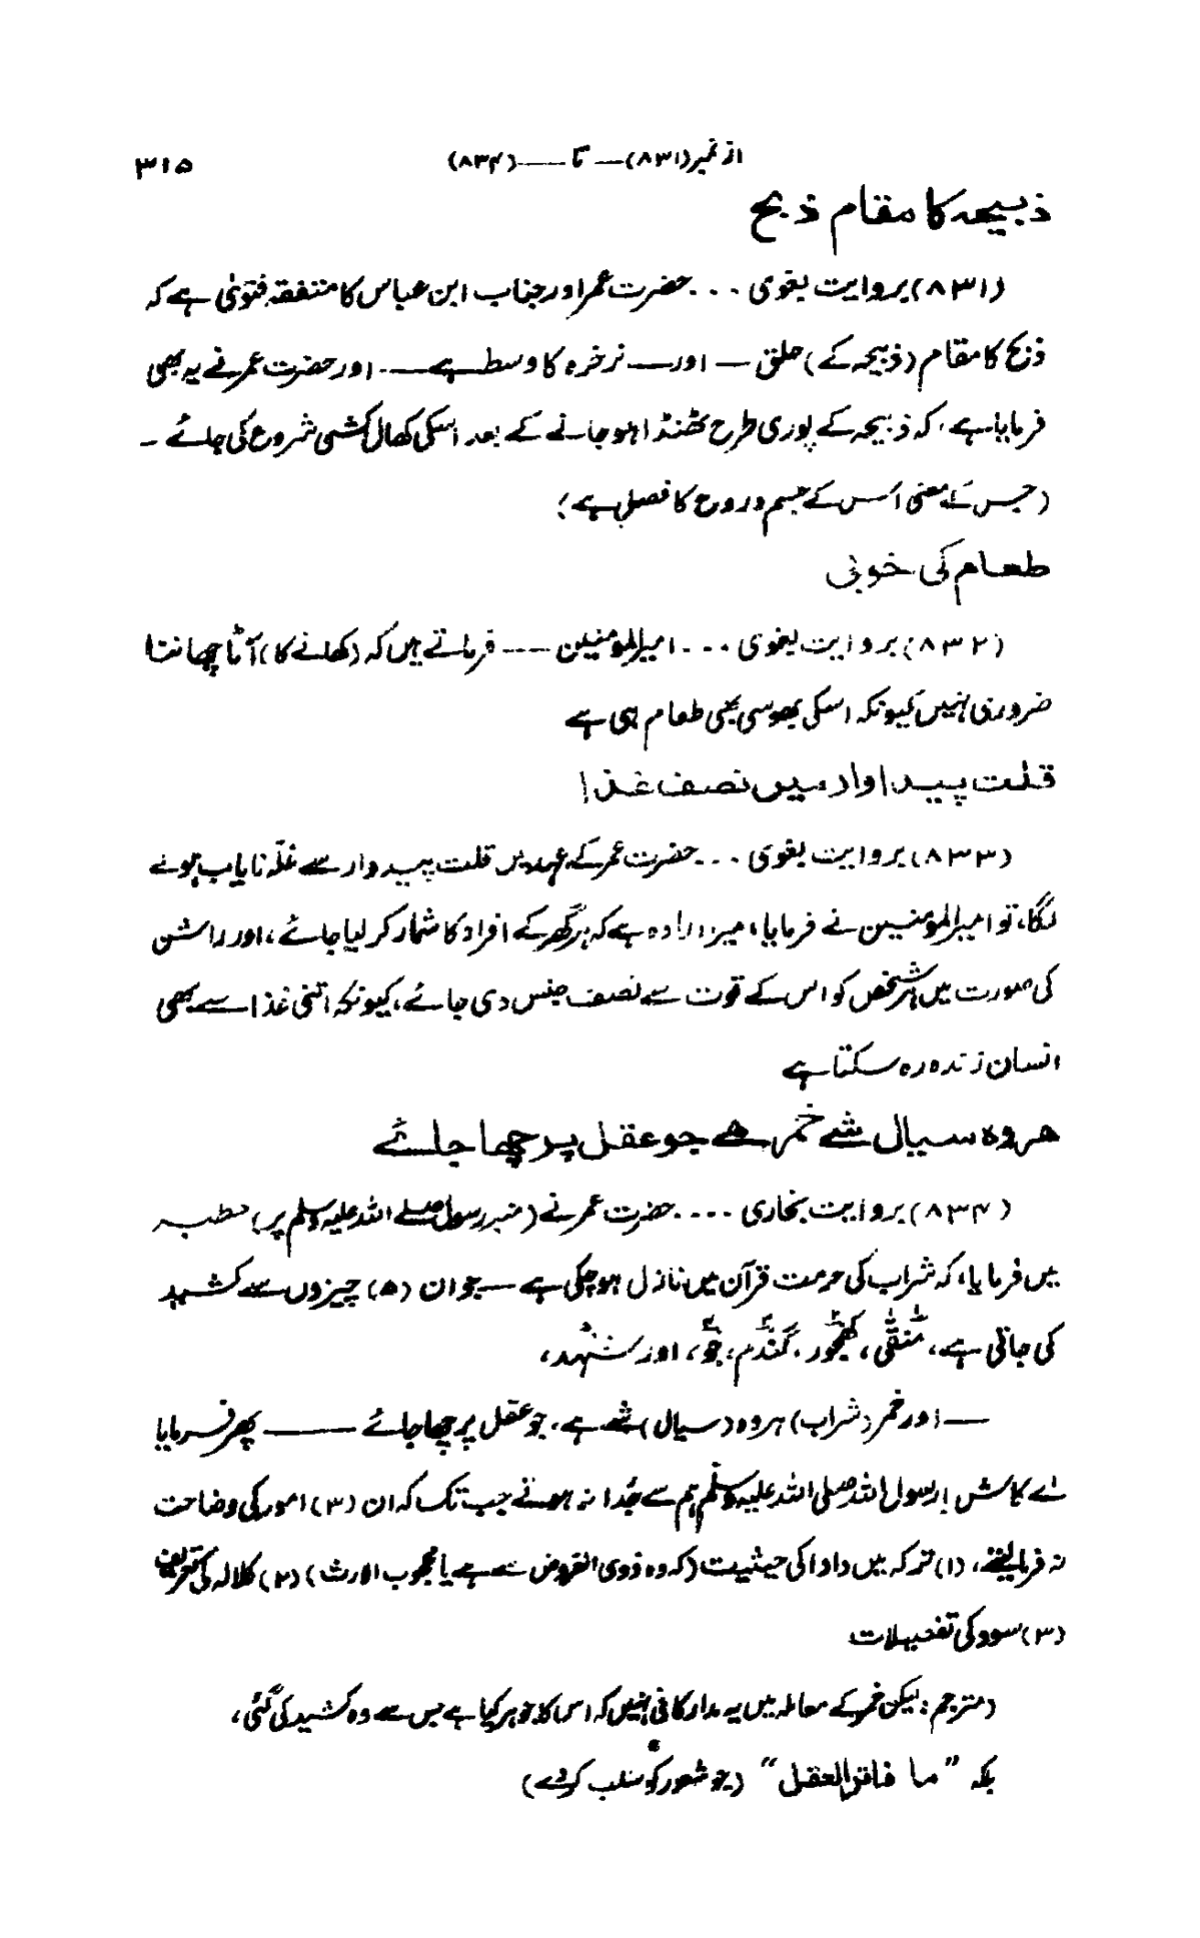 ۳۱۵
از نمبر (۸۳۱) — تا — (۸۳۴)
ذبیحہ کا مقام ذبح
(۸۳۱) بروایت بغوی ... حضرت عمر اور جناب ابن عباس کا متفقہ فتویٰ ہے کہ
ذبح کا مقام (ذبیحہ کے) حلق — اور — نرخرہ کا وسط ہے — اور حضرت عمر نے یہ بھی
فرمایا ہے، کہ ذبیحہ کے پوری طرح ٹھنڈا ہو جانے کے بعد اسکی کھال کشی شروع کی جائے ۔
(جس کے معنی اس کے جسم و روح کا فصل ہے)
طعام کی خوبی
(۸۳۲) بروایت بغوی ... امیر المؤمنین --- فرماتے ہیں کہ (کھانے کا) آٹا چھاننا
ضروری نہیں کیونکہ اسکی بھوسی بھی طعام ہی ہے
قلت پیداوار میں نصف غذا
(۸۳۳) بروایت بغوی ... حضرت عمر کے عہد میں قلت پیداوار سے غلّہ نایاب ہونے
لگا، تو امیر المؤمنین نے فرمایا، میرا ارادہ ہے کہ ہر گھر کے افراد کا شمار کر لیا جائے، اور راشن
کی صورت میں ہر شخص کو اس کے قوت سے نصف جنس دی جائے، کیونکہ اتنی غذا سے بھی
انسان زندہ رہ سکتا ہے
ہر وہ سیال شے خمر ہے جو عقل پر چھا جائے
(۸۳۴) بروایت بخاری .... حضرت عمر نے (منبر رسول صلے اللہ علیہ وسلم پر) خطبہ
میں فرمایا، کہ شراب کی حرمت قرآن میں نازل ہو چکی ہے — جو ان (۵) چیزوں سے کشید
کی جاتی ہے، منقّٰی، کھجور، گندم، جَو، اور شہد،
— اور خمر (شراب) ہر وہ (سیال) شے ہے، جو عقل پر چھا جائے —— پھر فرمایا
اے کاش! رسول اللہ صلی اللہ علیہ وسلم ہم سے جُدا نہ ہوتے جب تک کہ ان (۳) امور کی وضاحت
نہ فرما لیتے، (۱) ترکہ میں دادا کی حیثیت (کہ وہ ذوی الفروض سے ہے یا محجوب الارث) (۲) کلالہ کی تعریف
(۳) سود کی تفصیلات
(مترجم: لیکن خمر کے معاملہ میں یہ مدار کافی نہیں کہ اس کا جوہر کیا ہے جس سے وہ کشید کی گئی،
بلکہ ”ما خامر العقل“ (جو شعور کو سلب کر دے)